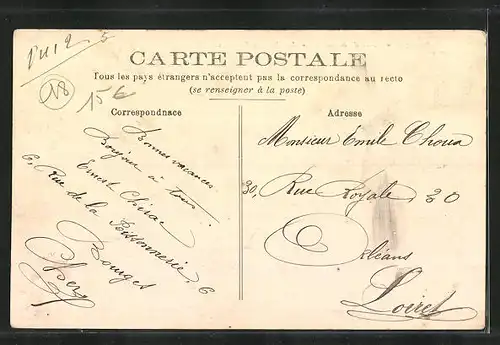 18
15€
CARTE POSTALE
Tous les pays étrangers n'acceptent pas la correspondance au recto
(se renseigner à la poste)
Correspondnace
Adresse
Bonnes vacances
Bonjour à tous
Ernest
6, Rue de la Poissonnerie, 6
Bourges
Cher
Monsieur Emile Choua
30, Rue Royale, 30
Orléans
Loiret